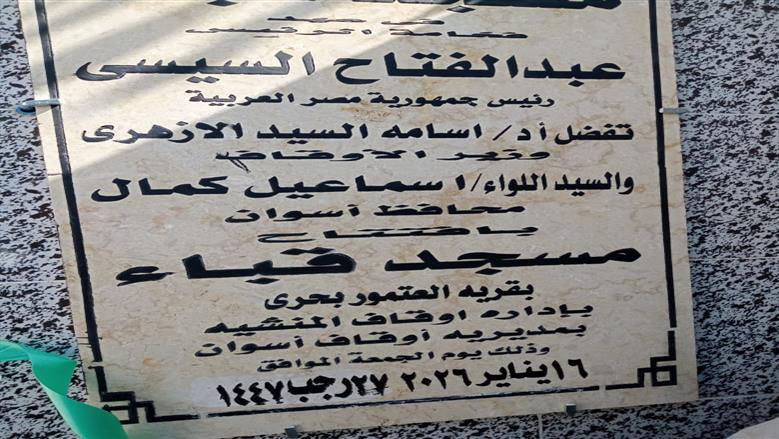 فى عهد
فخامة الرئيس
عبدالفتاح السيسى
رئيس جمهورية مصر العربية
تفضل أد/ اسامه السيد الازهرى
وزير الاوقاف
والسيد اللواء/ اسماعيل كمال
محافظ أسوان
بافتتاح
مسجد قباء
بقريه العتمور بحرى
بإداره اوقاف المنشيه
بمديريه أوقاف أسوان
وذلك يوم الجمعة الموافق
١٦ يناير ٢٠٢٦ ٢٧ رجب ١٤٤٧